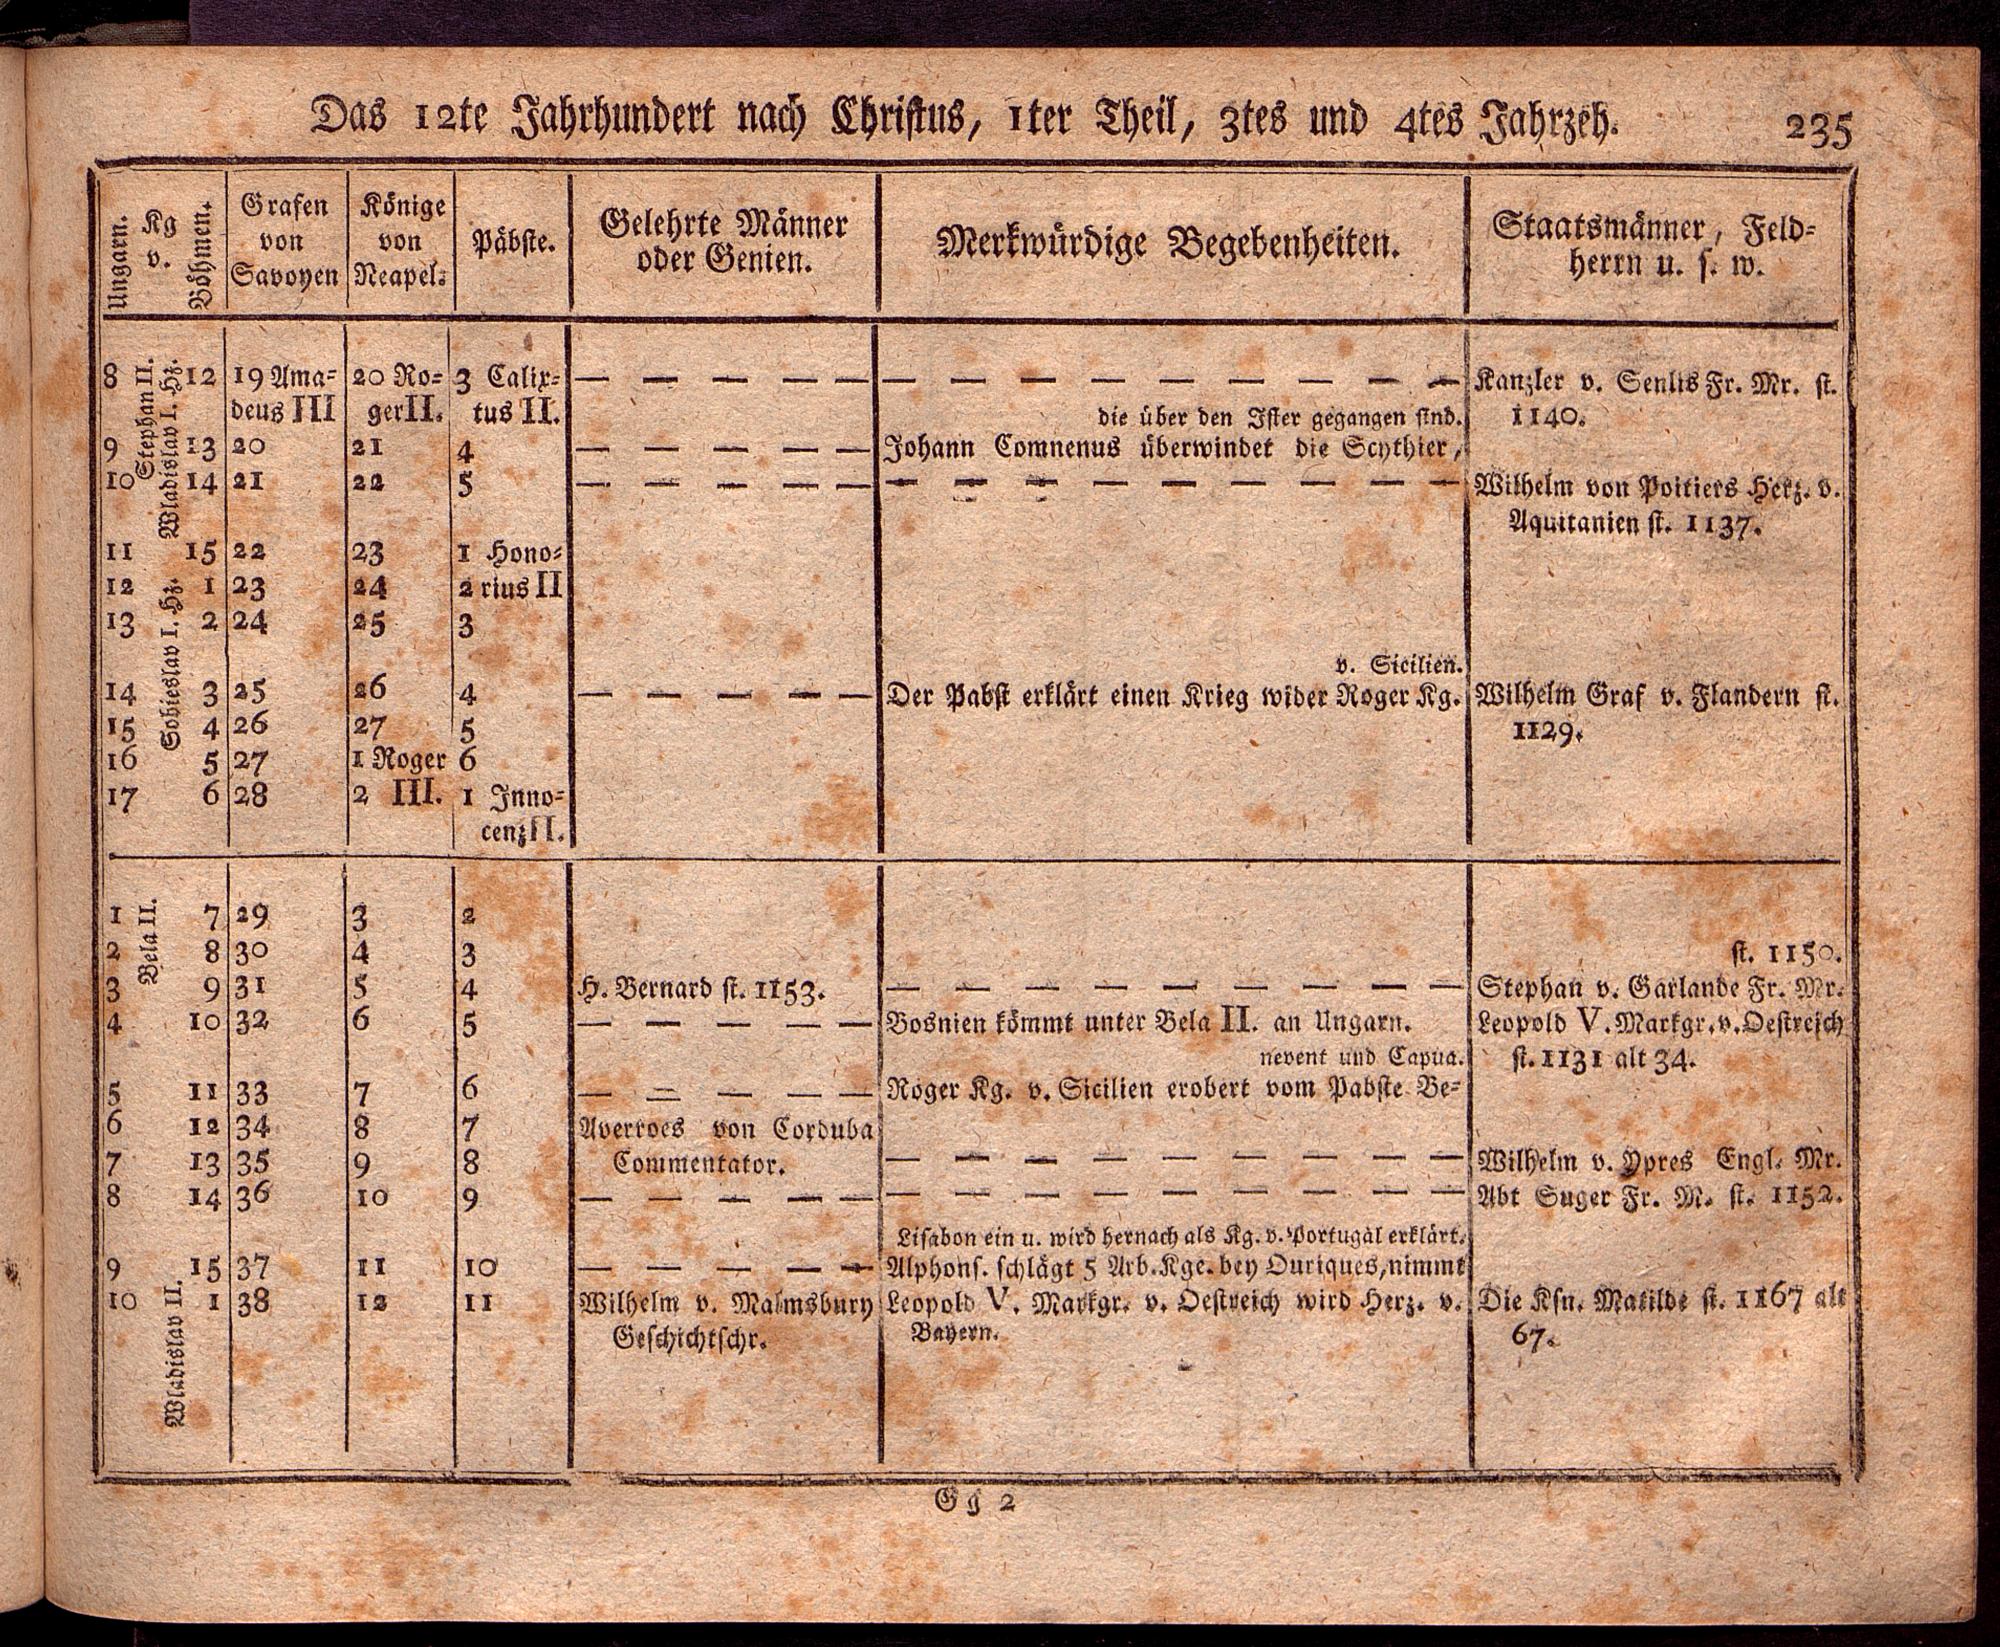 Das 12te Jahrhundert nach Christus, 1ter Theil, 3tes und 4tes Jahrzeh. 235
Ungarn. Kg v. Böhmen. Grafen von Savoyen Könige von Neapel. Päbste. Gelehrte Männer oder Genien. Merkwürdige Begebenheiten. Staatsmänner, Feld-
herrn u. s. w.
Stephan II.
Wladislav I. Hz.
8 12 19 Ama- 20 Ro- 3 Calix- — — — — — — — — — — — — — — Kanzler v. Senlis Fr. Mr. st.
deus III ger II. tus II. die über den Ister gegangen sind. 1140.
9 13 20 21 4 — — — — — Johann Comnenus überwindet die Scythier,
10 14 21 22 5 — — — — — — — — — — — — — — Wilhelm von Poitiers Herz. v.
Aquitanien st. 1137.
11 15 22 23 1 Hono-
Sobieslav I. Hz.
12 1 23 24 2 rius II
13 2 24 25 3
v. Sicilien.
14 3 25 26 4 — — — — — Der Pabst erklärt einen Krieg wider Roger Kg. Wilhelm Graf v. Flandern st.
15 4 26 27 5 1129.
16 5 27 1 Roger 6
17 6 28 2 III. 1 Inno-
cenz II.
Bela II.
1 7 29 3 2
2 8 30 4 3 st. 1150.
3 9 31 5 4 H. Bernard st. 1153. — — — — — — — — — Stephan v. Garlande Fr. Mr.
4 10 32 6 5 — — — — — Bosnien kömmt unter Bela II. an Ungarn. Leopold V. Markgr. v. Oestreich
nevent und Capua. st. 1131 alt 34.
5 11 33 7 6 — — — — — Roger Kg. v. Sicilien erobert vom Pabste Be-
6 12 34 8 7 Averroes von Corduba
7 13 35 9 8 Commentator. — — — — — — — — — Wilhelm v. Ypres Engl. Mr.
8 14 36 10 9 — — — — — — — — — — — — — — Abt Suger Fr. M. st. 1152.
Lisabon ein u. wird hernach als Kg. v. Portugal erklärt.
9 15 37 11 10 — — — — — Alphons. schlägt 5 Arb. Kge. bey Ouriques, nimmt
Wladislav II.
10 1 38 12 11 Wilhelm v. Malmsbury Leopold V. Markgr. v. Oestreich wird Herz. v. Die Ksn. Matilde st. 1167 alt
Geschichtschr. Bayern. 67.
Gg 2